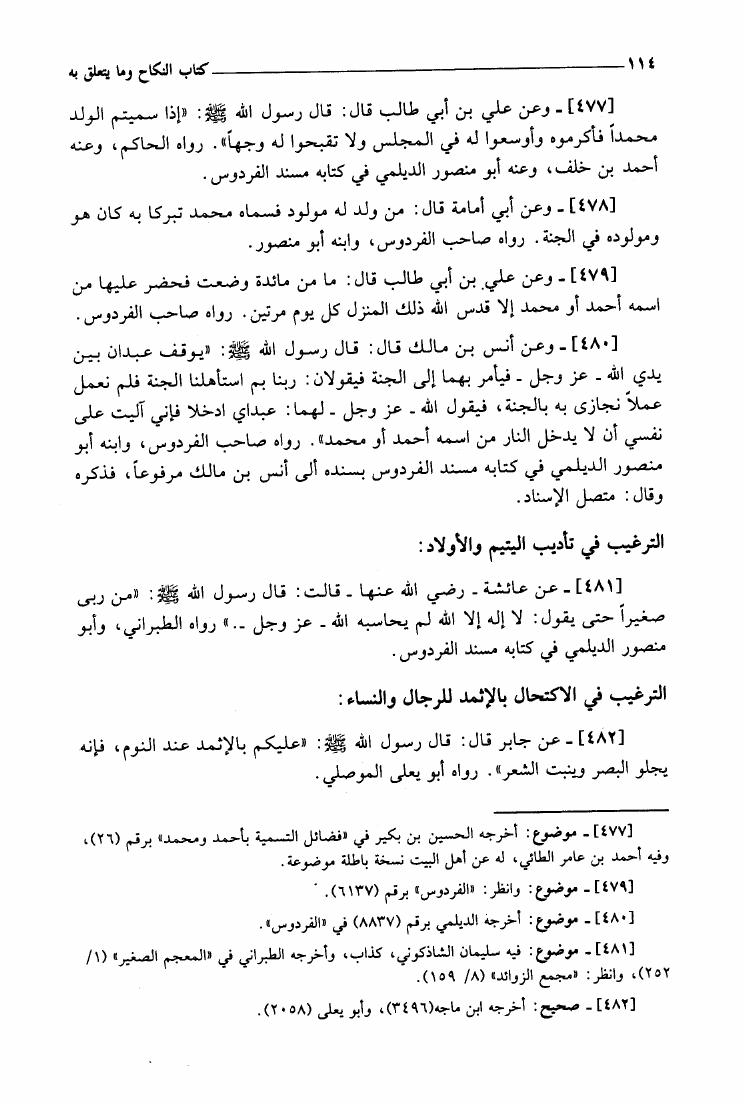 ١١٤ كتاب النكاح وما يتعلق به
[٤٧٧] ـ وعن علي بن أبي طالب قال: قال رسول الله ﷺ: «إذا سميتم الولد
محمداً فأكرموه وأوسعوا له في المجلس ولا تقبحوا له وجهاً». رواه الحاكم، وعنه
أحمد بن خلف، وعنه أبو منصور الديلمي في كتابه مسند الفردوس.
[٤٧٨] ـ وعن أبي أمامة قال: من ولد له مولود فسماه محمد تبركا به كان هو
ومولوده في الجنة. رواه صاحب الفردوس، وابنه أبو منصور.
[٤٧٩] ـ وعن علي بن أبي طالب قال: ما من مائدة وضعت فحضر عليها من
اسمه أحمد أو محمد إلا قدس الله ذلك المنزل كل يوم مرتين. رواه صاحب الفردوس.
[٤٨٠] ـ وعن أنس بن مالك قال: قال رسول الله ﷺ: «يوقف عبدان بين
يدي الله ـ عز وجل ـ فيأمر بهما إلى الجنة فيقولان: ربنا بم استأهلنا الجنة فلم نعمل
عملاً نجازى به بالجنة، فيقول الله ـ عز وجل ـ لهما: عبداي ادخلا فإني آليت على
نفسي أن لا يدخل النار من اسمه أحمد أو محمد». رواه صاحب الفردوس، وابنه أبو
منصور الديلمي في كتابه مسند الفردوس بسنده ألى أنس بن مالك مرفوعاً، فذكره
وقال: متصل الإسناد.
الترغيب في تأديب اليتيم والأولاد:
[٤٨١] ـ عن عائشة ـ رضي الله عنها ـ قالت: قال رسول الله ﷺ: «من ربى
صغيراً حتى يقول: لا إله إلا الله لم يحاسبه الله ـ عز وجل ـ.» رواه الطبراني، وأبو
منصور الديلمي في كتابه مسند الفردوس.
الترغيب في الاكتحال بالإثمد للرجال والنساء:
[٤٨٢] ـ عن جابر قال: قال رسول الله ﷺ: «عليكم بالإثمد عند النوم، فإنه
يجلو البصر وينبت الشعر». رواه أبو يعلى الموصلي.
[٤٧٧] ـ موضوع: أخرجه الحسين بن بكير في «فضائل التسمية بأحمد ومحمد» برقم (٢٦)،
وفيه أحمد بن عامر الطائي، له عن أهل البيت نسخة باطلة موضوعة.
[٤٧٩] ـ موضوع: وانظر: «الفردوس» برقم (٦١٣٧).
[٤٨٠] ـ موضوع: أخرجه الديلمي برقم (٨٨٣٧) في «الفردوس».
[٤٨١] ـ موضوع: فيه سليمان الشاذكوني، كذاب، وأخرجه الطبراني في «المعجم الصغير» (١/
٢٥٢)، وانظر: «مجمع الزوائد» (٨/ ١٥٩).
[٤٨٢] ـ صحيح: أخرجه ابن ماجه(٣٤٩٦)، وأبو يعلى (٢٠٥٨).